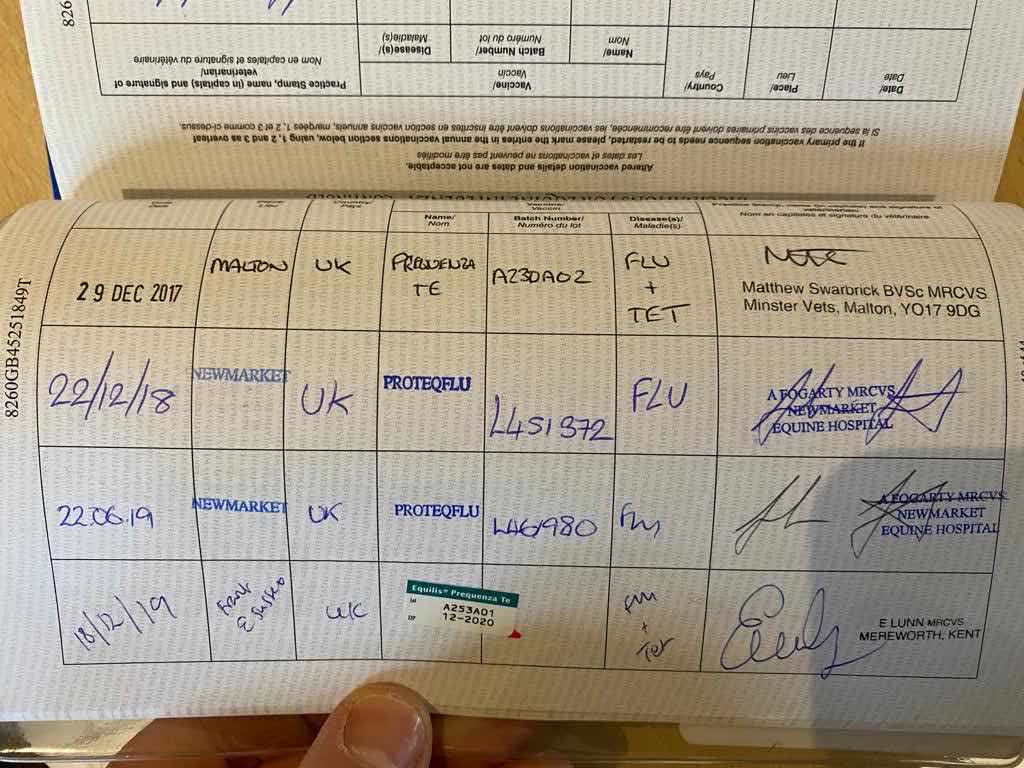 Practice Stamp, name (in capitals) and signature of
veterinarian/
Nom en capitales et signature du vétérinaire
Vaccine/
Vaccin
Disease(s)/
Maladie(s)
Batch Number/
Numéro du lot
Name/
Nom
Country/
Pays
Place/
Lieu
Date/
Date
If the primary vaccination sequence needs to be restarted, please mark the entries in the annual vaccinations section below, using 1, 2 and 3 as overleaf
Si la séquence des vaccins primaires doivent être recommencée, les vaccinations doivent être inscrites en section vaccins annuels, marqées 1, 2 et 3 comme ci-dessus.
Altered vaccination details and dates are not acceptable.
Les dates et vaccinations ne peuvent pas être modifiés
8260GB45251849T
Country/
Pays
Vaccin
Name/
Nom
Batch Number/
Numéro du lot
Disease(s)/
Maladie(s)
Nom en capitales et signature du vétérinaire
29 DEC 2017
MALTON
UK
PREQUENZA
TE
A230A02
FLU
+
TET
Matthew Swarbrick BVSc MRCVS
Minster Vets, Malton, YO17 9DG
22/12/18
NEWMARKET
UK
PROTEQFLU
L451372
FLU
A FOGARTY MRCVS
NEWMARKET
EQUINE HOSPITAL
22.06.19
NEWMARKET
UK
PROTEQFLU
L461980
Flu
A FOGARTY MRCVS
NEWMARKET
EQUINE HOSPITAL
18/12/19
E Sussex
UK
Equilis® Prequenza Te
A253A01
12-2020
Flu
+
Tet
E LUNN MRCVS
MEREWORTH, KENT